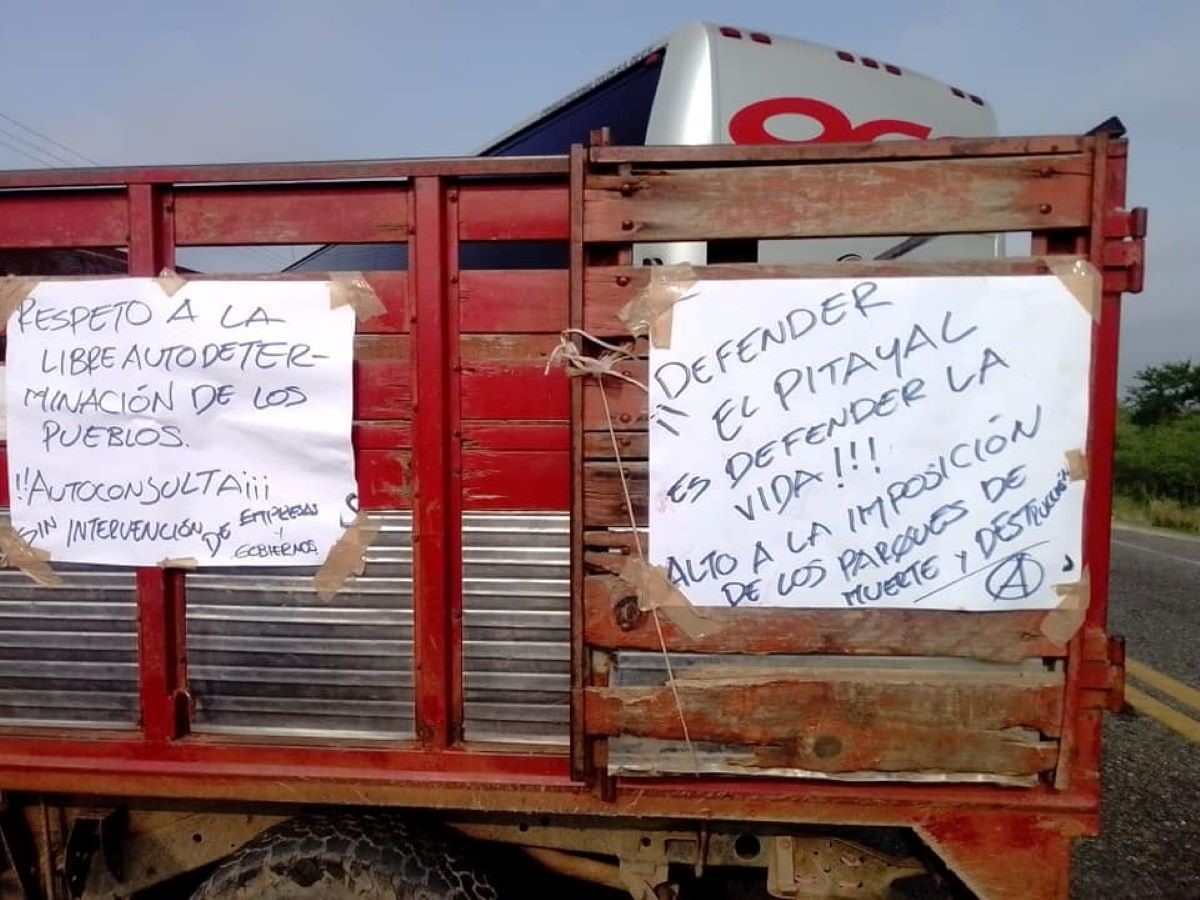 RESPETO A LA
LIBRE AUTODETER-
MINACIÓN DE LOS
PUEBLOS.
!!AUTOCONSULTA¡¡¡
SIN INTERVENCIÓN DE EMPRESAS
Y
GOBIERNOS
¡¡DEFENDER
EL PITAYAL
ES DEFENDER LA
VIDA!!!
ALTO A LA IMPOSICIÓN
DE LOS PARQUES DE
MUERTE Y DESTRUCCIÓN